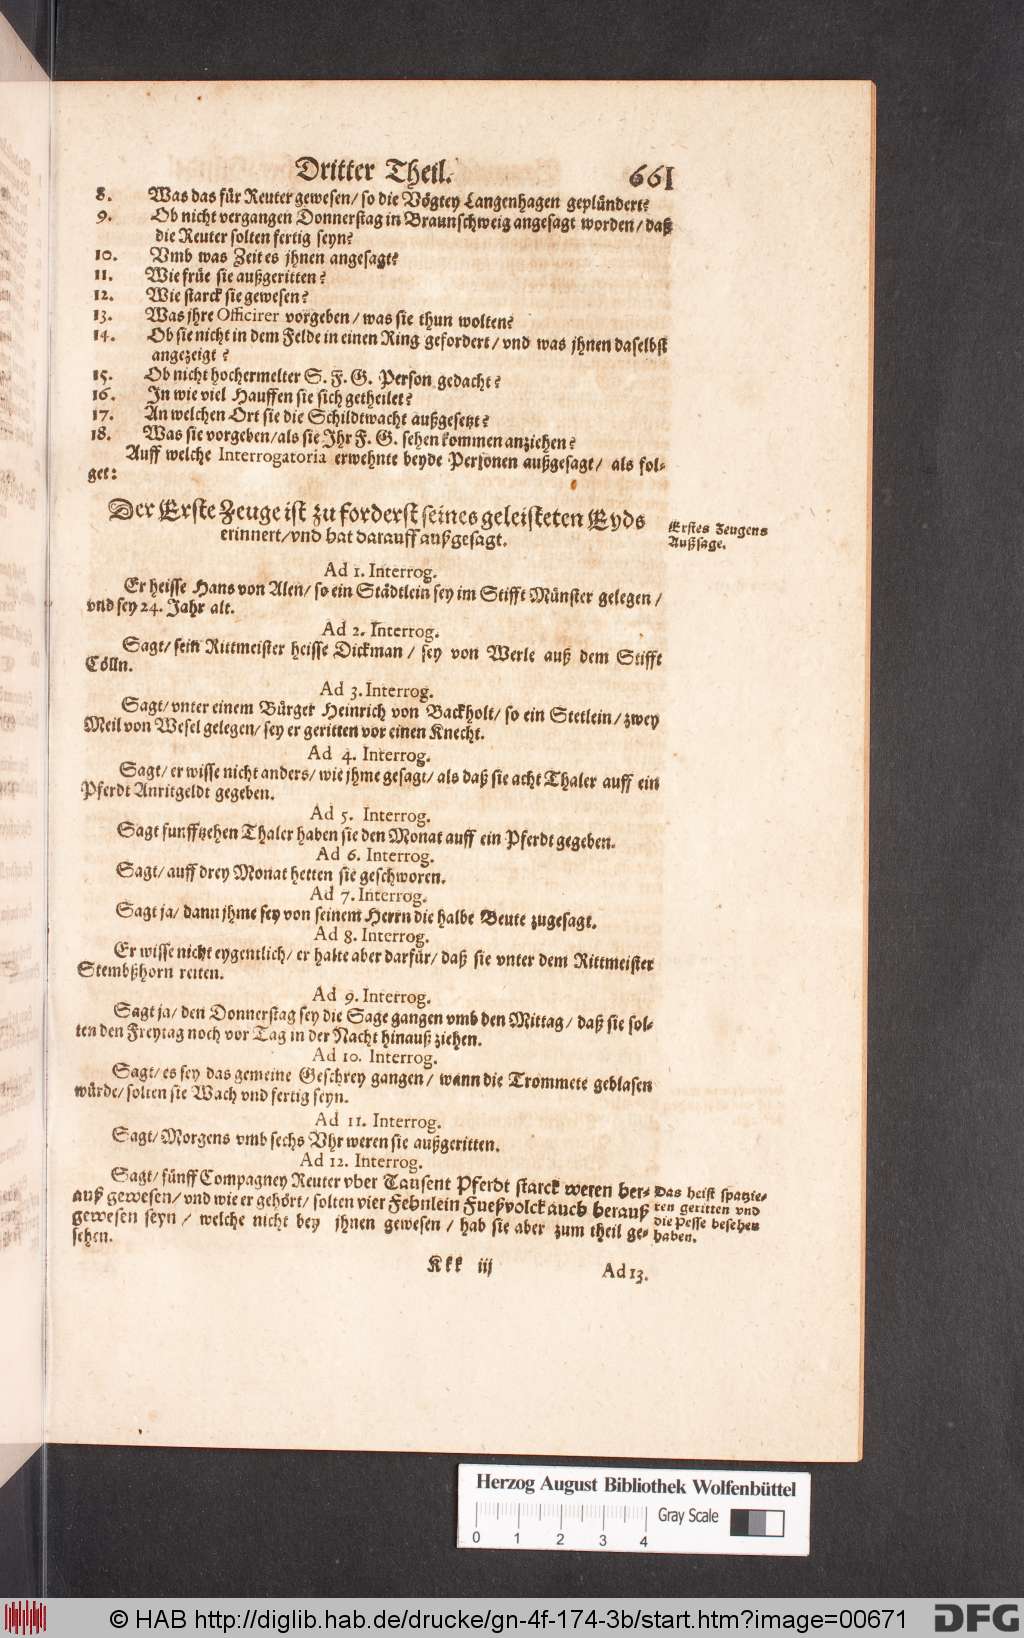 Dritter Theil. 661
8. Was das für Reuter gewesen/ so die Vögtey Langenhagen geplündert?
9. Ob nicht vergangen Donnerstag in Braunschweig angesagt worden/ daß
die Reuter solten fertig seyn?
10. Vmb was Zeit es jhnen angesagt?
11. Wie früe sie außgeritten?
12. Wie starck sie gewesen?
13. Was jhre Officirer vorgeben/ was sie thun wolten?
14. Ob sie nicht in dem Felde in einen Ring gefordert/ vnd was jhnen daselbst
angezeigt?
15. Ob nicht hochermelter S. F. G. Person gedacht?
16. In wie viel Hauffen sie sich getheilet?
17. An welchen Ort sie die Schildtwacht außgesetzt?
18. Was sie vorgeben/ als sie Ihr F. G. sehen kommen anziehen?
Auff welche Interrogatoria erwehnte beyde Personen außgesagt/ als fol-
get:
Der Erste Zeuge ist zu forderst seines geleisteten Eyds
erinnert/ vnd hat darauff außgesagt.
Erstes Zeugens
Außsage.
Ad 1. Interrog.
Er heisse Hans von Alen/ so ein Städtlein sey im Stifft Münster gelegen/
vnd sey 24. Jahr alt.
Ad 2. Interrog.
Sagt/ sein Rittmeister heisse Dickman/ sey von Werle auß dem Stifft
Cölln.
Ad 3. Interrog.
Sagt/ vnter einem Bürger Heinrich von Backholt/ so ein Stetlein/ zwey
Meil von Wesel gelegen/ sey er geritten vor einen Knecht.
Ad 4. Interrog.
Sagt/ er wisse nicht anders/ wie jhme gesagt/ als daß sie acht Thaler auff ein
Pferdt Anritgeldt gegeben.
Ad 5. Interrog.
Sagt funfftzehen Thaler haben sie den Monat auff ein Pferdt gegeben.
Ad 6. Interrog.
Sagt/ auff drey Monat hetten sie geschworen.
Ad 7. Interrog.
Sagt ja/ dann jhme sey von seinem Herrn die halbe Beute zugesagt.
Ad 8. Interrog.
Er wisse nicht eygentlich/ er halte aber darfür/ daß sie vnter dem Rittmeister
Stembßhorn reiten.
Ad 9. Interrog.
Sagt ja/ den Donnerstag sey die Sage gangen vmb den Mittag/ daß sie sol-
ten den Freytag noch vor Tag in der Nacht hinauß ziehen.
Ad 10. Interrog.
Sagt/ es sey das gemeine Geschrey gangen/ wann die Trommete geblasen
würde/ solten sie Wach vnd fertig seyn.
Ad 11. Interrog.
Sagt/ Morgens vmb sechs Vhr weren sie außgeritten.
Ad 12. Interrog.
Sagt/ fünff Compagney Reuter vber Tausent Pferdt starck weren her-
auß gewesen/ vnd wie er gehört/ solten vier Fehnlein Fueßvolck auch herauß
gewesen seyn/ welche nicht bey jhnen gewesen/ hab sie aber zum theil ge-
sehen.
Das heist spatzie-
ren geritten vnd
die Pesse besehen
haben.
Kkk iij Ad 13.
Herzog August Bibliothek Wolfenbüttel
Gray Scale
0 1 2 3 4
© HAB http://diglib.hab.de/drucke/gn-4f-174-3b/start.htm?image=00671 DFG